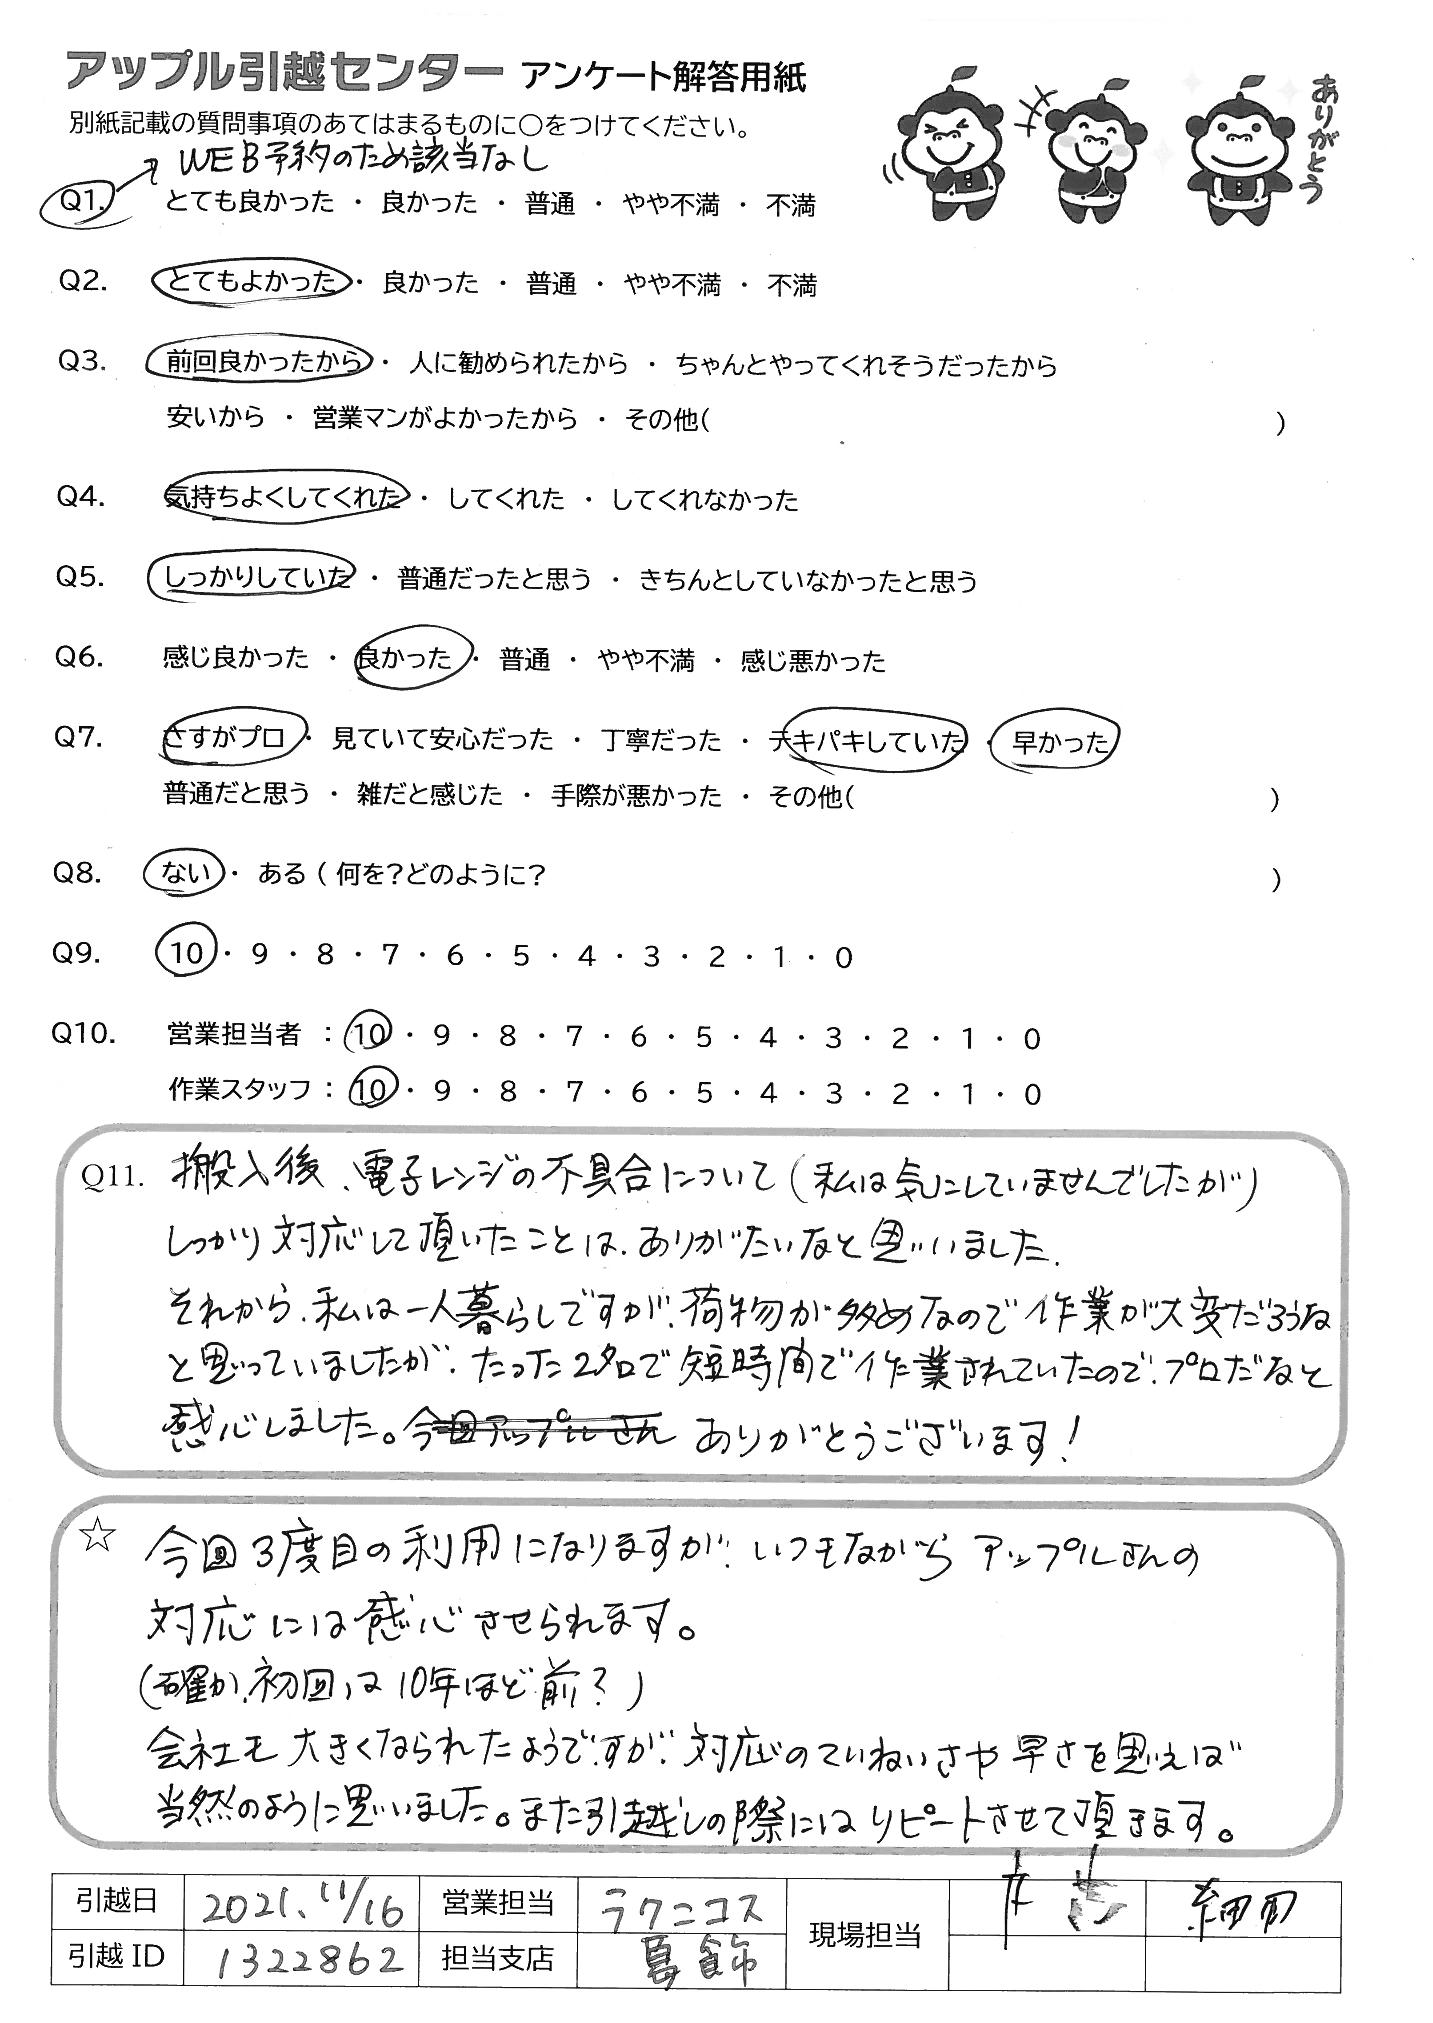 アップル引越センター アンケート解答用紙
別紙記載の質問事項のあてはまるものに〇をつけてください。
ありがとう
WEB予約のため該当なし
Q1. とても良かった ・ 良かった ・ 普通 ・ やや不満 ・ 不満
Q2. とてもよかった ・ 良かった ・ 普通 ・ やや不満 ・ 不満
Q3. 前回良かったから ・ 人に勧められたから ・ ちゃんとやってくれそうだったから
安いから ・ 営業マンがよかったから ・ その他( )
Q4. 気持ちよくしてくれた ・ してくれた ・ してくれなかった
Q5. しっかりしていた ・ 普通だったと思う ・ きちんとしていなかったと思う
Q6. 感じ良かった ・ 良かった ・ 普通 ・ やや不満 ・ 感じ悪かった
Q7. さすがプロ ・ 見ていて安心だった ・ 丁寧だった ・ テキパキしていた ・ 早かった
普通だと思う ・ 雑だと感じた ・ 手際が悪かった ・ その他( )
Q8. ない ・ ある ( 何を?どのように? )
Q9. 10 ・ 9 ・ 8 ・ 7 ・ 6 ・ 5 ・ 4 ・ 3 ・ 2 ・ 1 ・ 0
Q10. 営業担当者 : 10 ・ 9 ・ 8 ・ 7 ・ 6 ・ 5 ・ 4 ・ 3 ・ 2 ・ 1 ・ 0
作業スタッフ : 10 ・ 9 ・ 8 ・ 7 ・ 6 ・ 5 ・ 4 ・ 3 ・ 2 ・ 1 ・ 0
Q11. 搬入後、電子レンジの不具合について(私は気にしていませんでしたが)
しっかり対応して頂いたことは、ありがたいなと思いました。
それから、私は一人暮らしですが、荷物が多めなので作業が大変だろうな
と思っていましたが、たった2名で短時間で作業されていたので、プロだなと
感心しました。今回アップルさん ありがとうございます!
☆ 今回3度目の利用になりますが、いつもながら アップルさんの
対応には感心させられます。
(確か、初回は10年ほど前?)
会社も大きくなられたようですが、対応のていねいさや早さを思えば
当然のように思いました。また引越しの際にはリピートさせて頂きます。
引越日 2021、11/16 営業担当 ラクニコス 現場担当 細田
引越ID 1322862 担当支店 葛飾